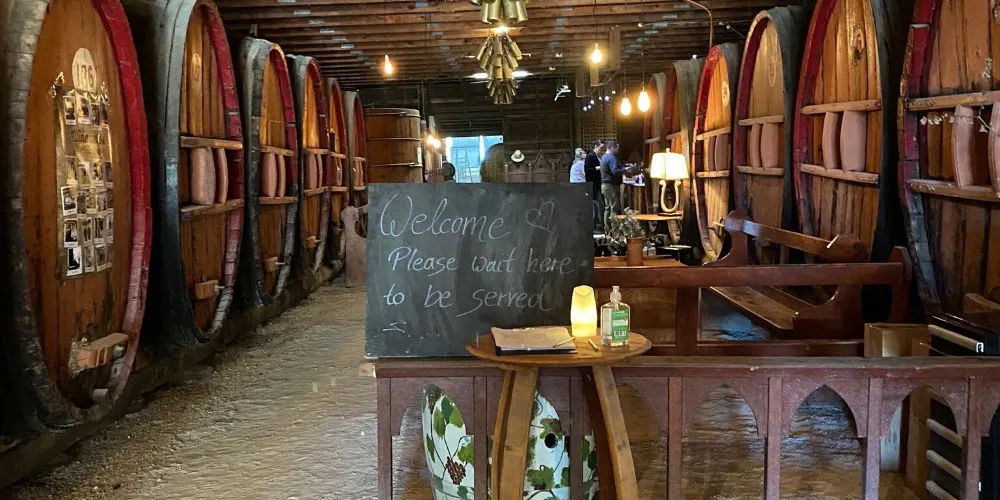 Welcome ♡
Please wait here
to be served